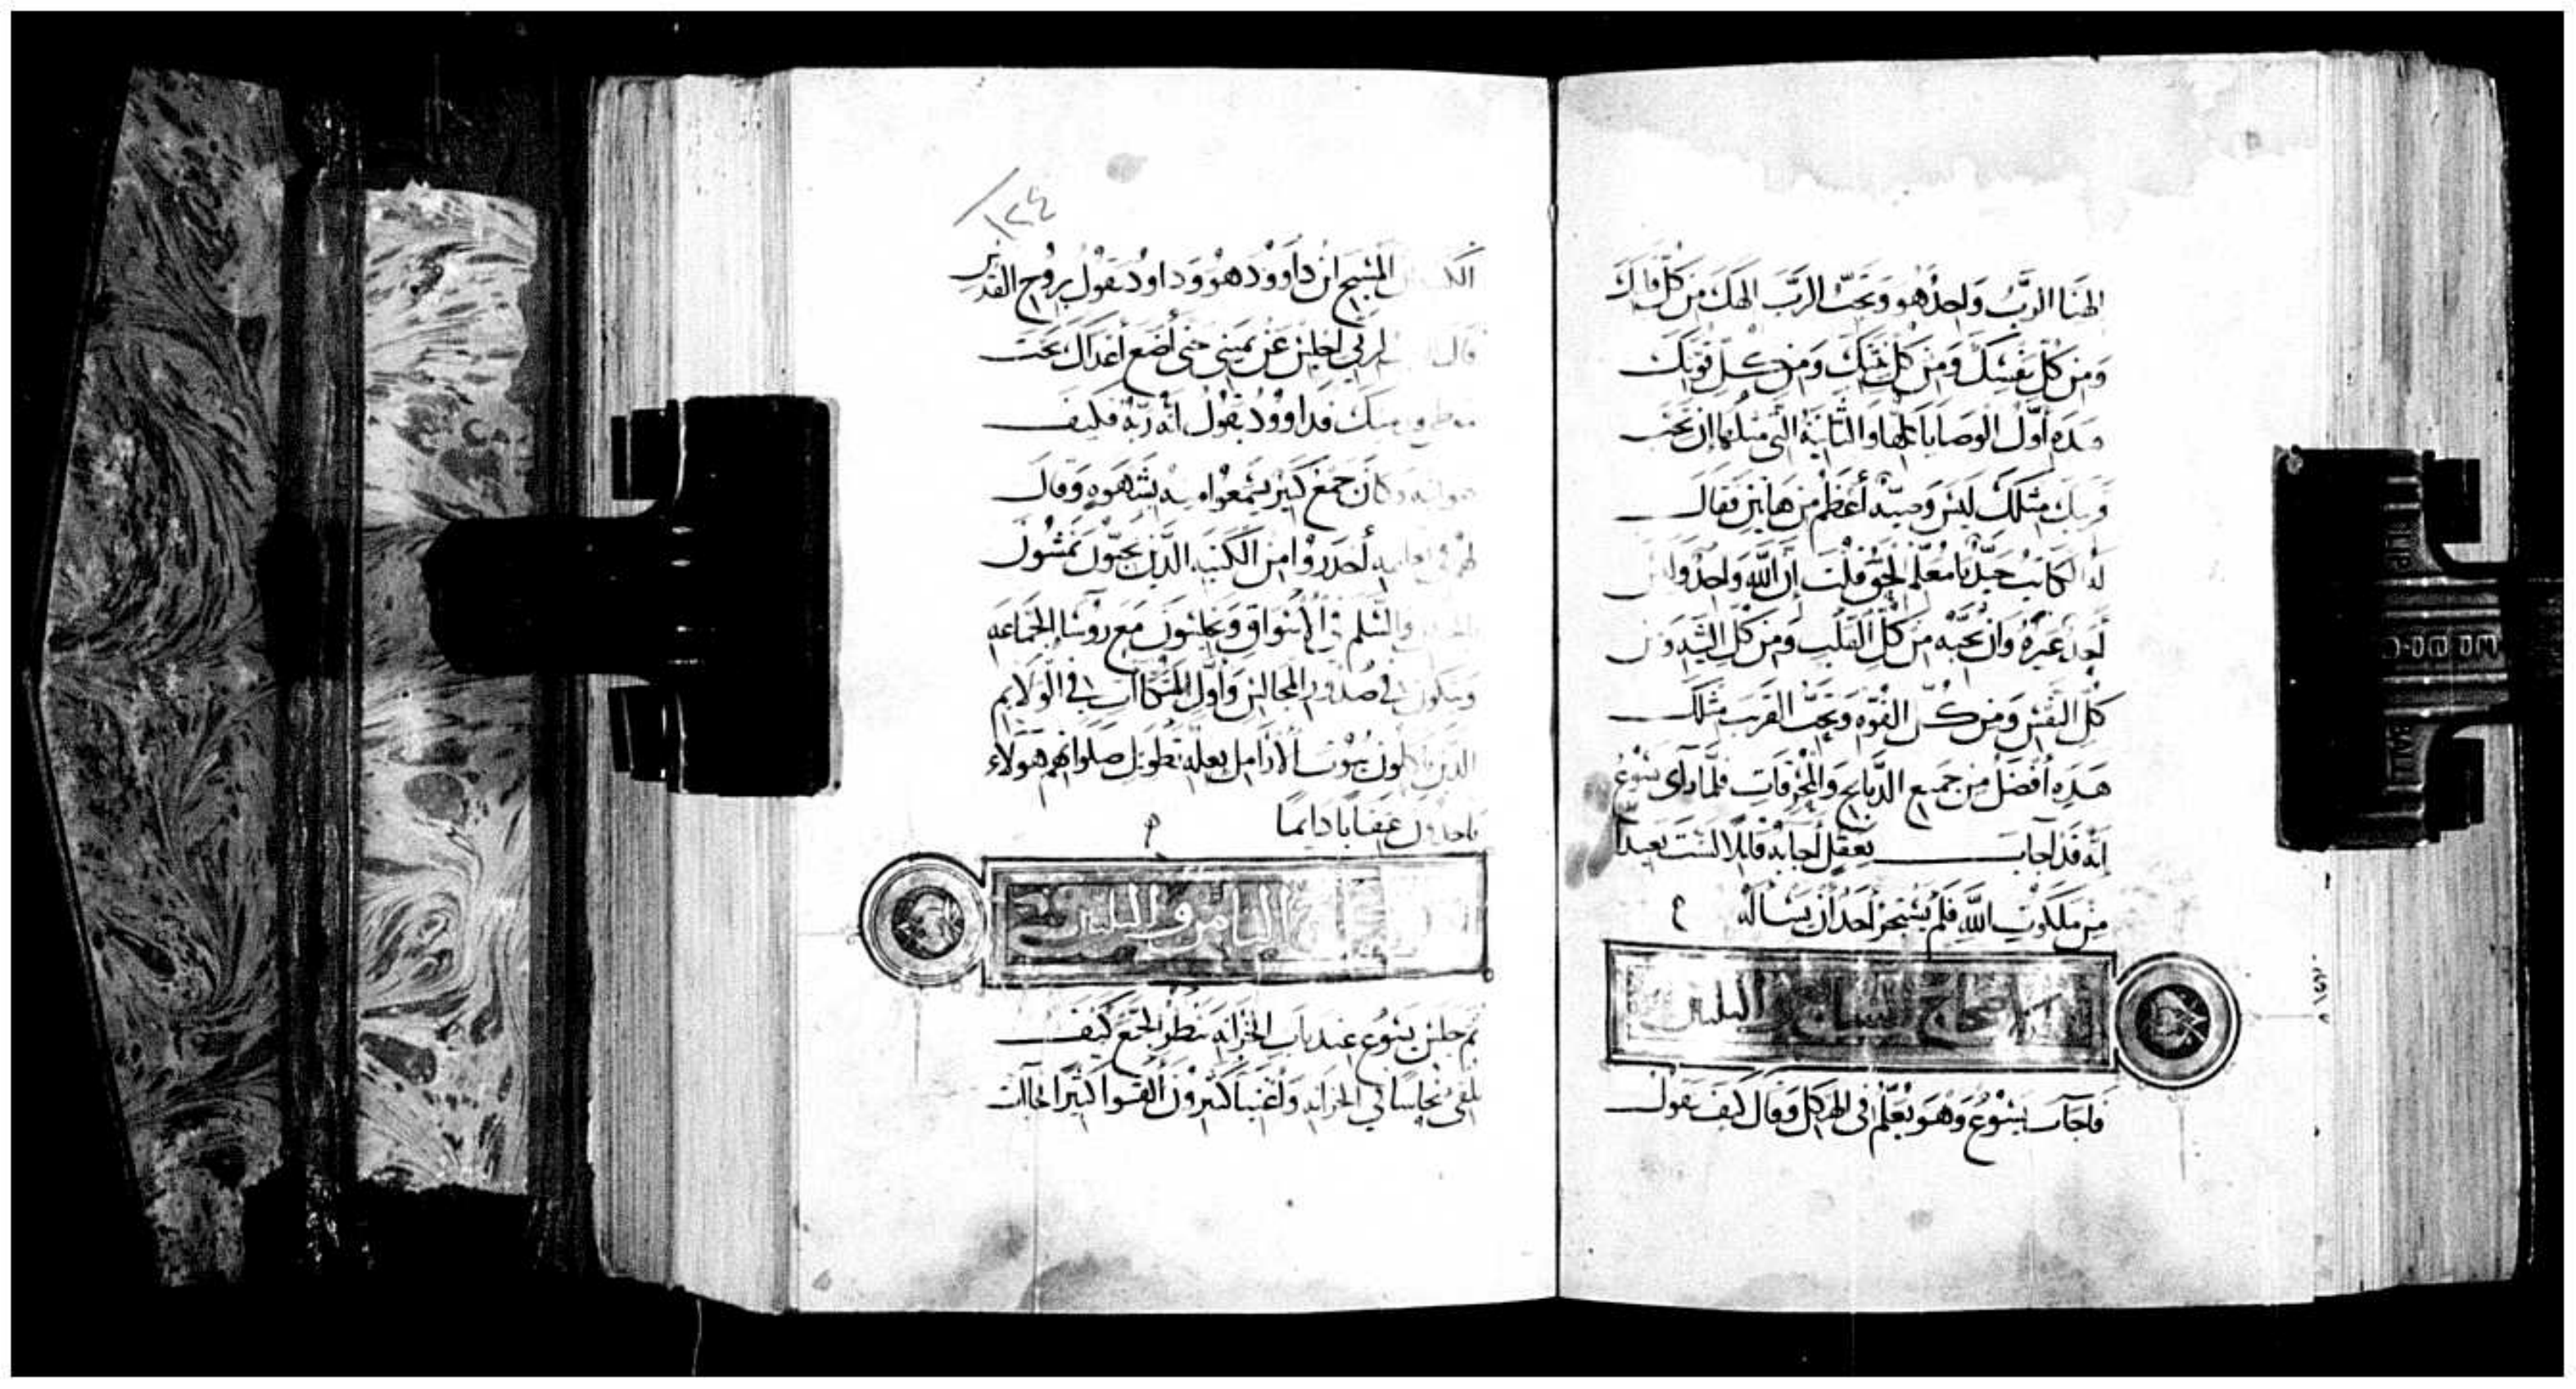 الهنا الربُّ واحدٌ هو وتحبّ الربَّ الهك من كلّ قلبك
ومن كلّ نفسك ومن كلّ نيتك ومن كــل قوتك
هذه أوّل الوصايا كلها والثانية التي مثلها ان تحب
قريبك مثلك ليس وصية أعظم من هاتين فقال
له الكاتب جيّدًا يا معلّم الحق قلت إن الله واحد وليس
أحد غيره وان تحبّه من كلّ القلب ومن كلّ النية ومن
كلّ النفس ومن كــل القوّه وتحبّ القريب مثلك
هذه أفضل من جميع الذبايح والمحرقات فلما رأى يسوع
انّه قد اجاب بعقل أجابه قايلا لست بعيدًا
من ملكوت الله فلم يستجز أحد أن يسأله
الاصحاح السابع والثلثين
فاجاب يسوع وهو يعلّم في الهيكل وقال كيف يقول
١٢٤
المسيح ابن داوود هو وداود يقول بروح القدس
قال لربي اجلس عن يميني حتى أضع أعداك تحت
فداوود يقول انّه ربّه فكيف
وكان جمع كبير يسمعوا منه بشهوه وقال
لهم في تعليمه أحدروا من الكتبه الذين يحبّون يمشون
والسّلم في الاسواق ويجلسون مع روسا الجماعه
ويتكون في صدور المجالس وأول المتكاآت في الولايم
الذين ياكلون بيوت الأرامل بعلة تطويل صلواتهم هولاء
ياخذون عقابا دايما
الثامن والثلثين
ثم جلس يسوع عند باب الخزانه ينظر الجمع كيف
يلقي نحاسا في الخزانه وأغنيا كثيرون ألقوا كثيرا فجاات